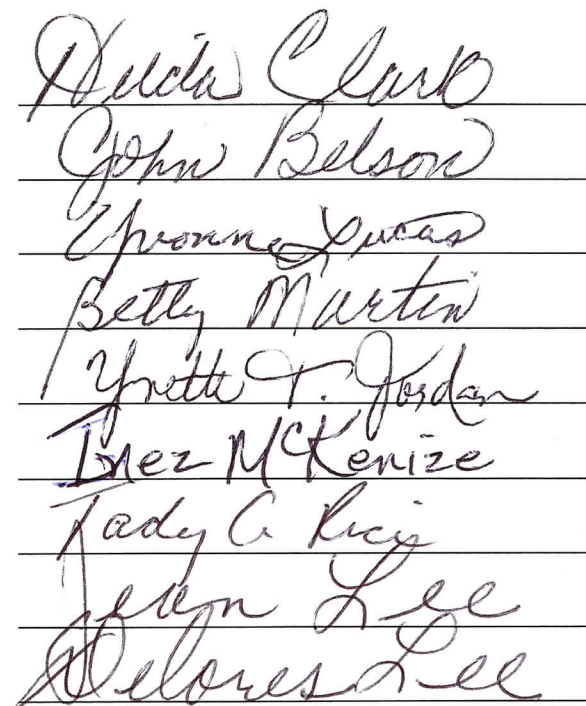 Hilda Clark
John Belson
Yvonne Lucas
Betty Martin
Yvette T. Jordan
Inez McKenize
Lee
Delores Lee